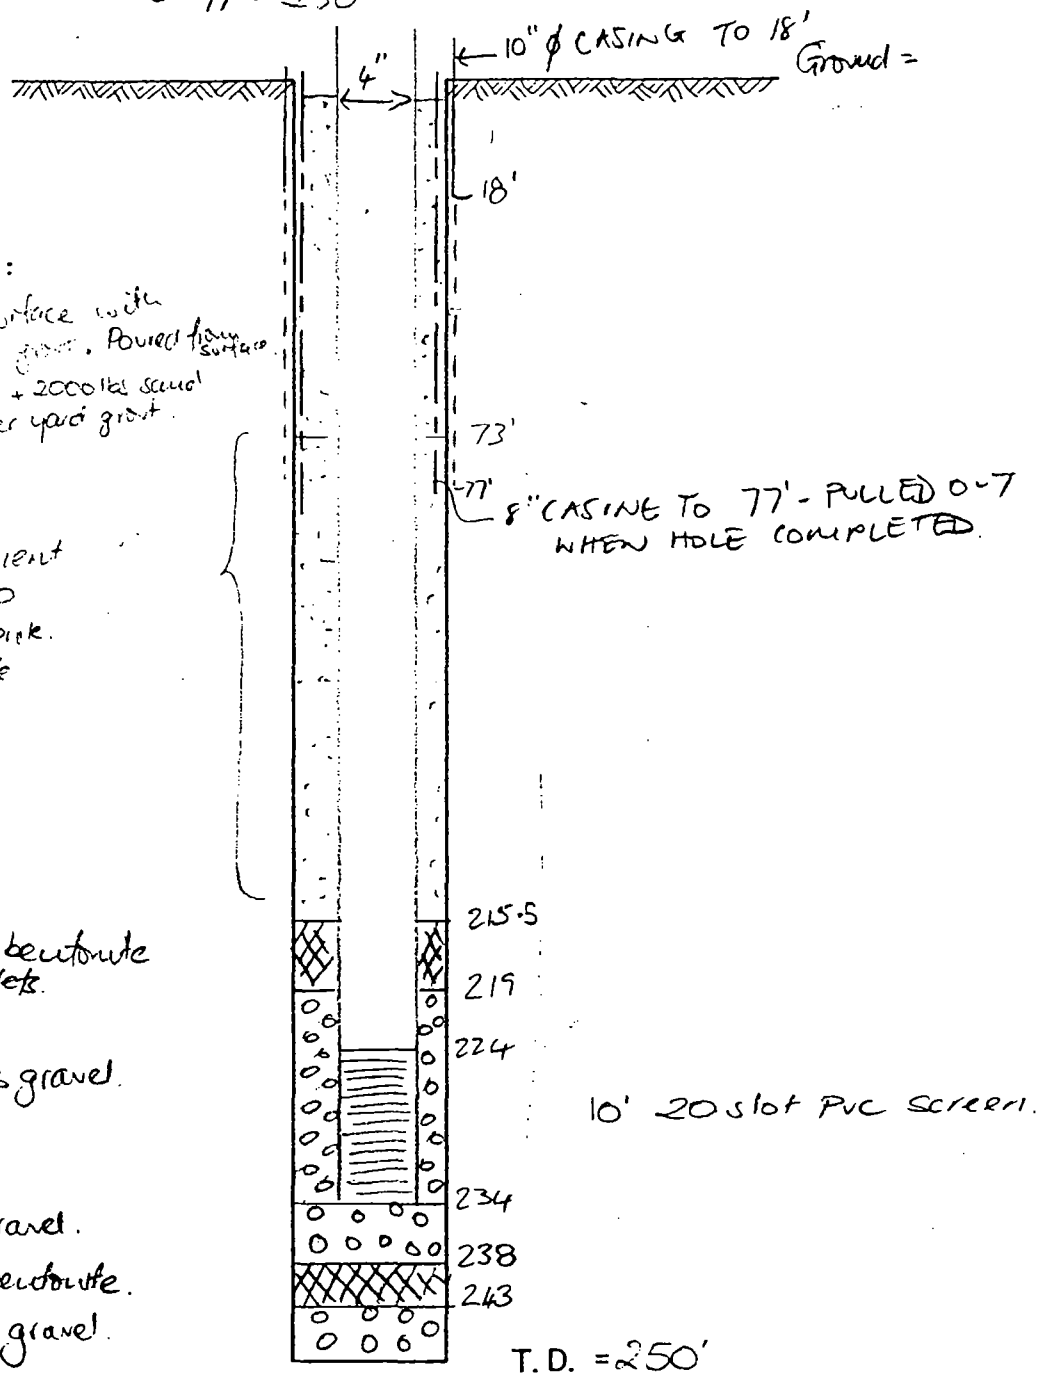 77 - 230
10" ϕ CASING TO 18'
Ground =
4"
18'
:
surface with
grout. Poured from surface.
+ 2000 lbs sand
per yard grout.
73'
77'
8" CASING TO 77' - PULLED OUT
WHEN HOLE COMPLETED.
215.5
bentonite
219
224
gravel.
10' 20 slot PVC screen.
234
gravel.
238
bentonite.
243
gravel.
T.D. = 250'